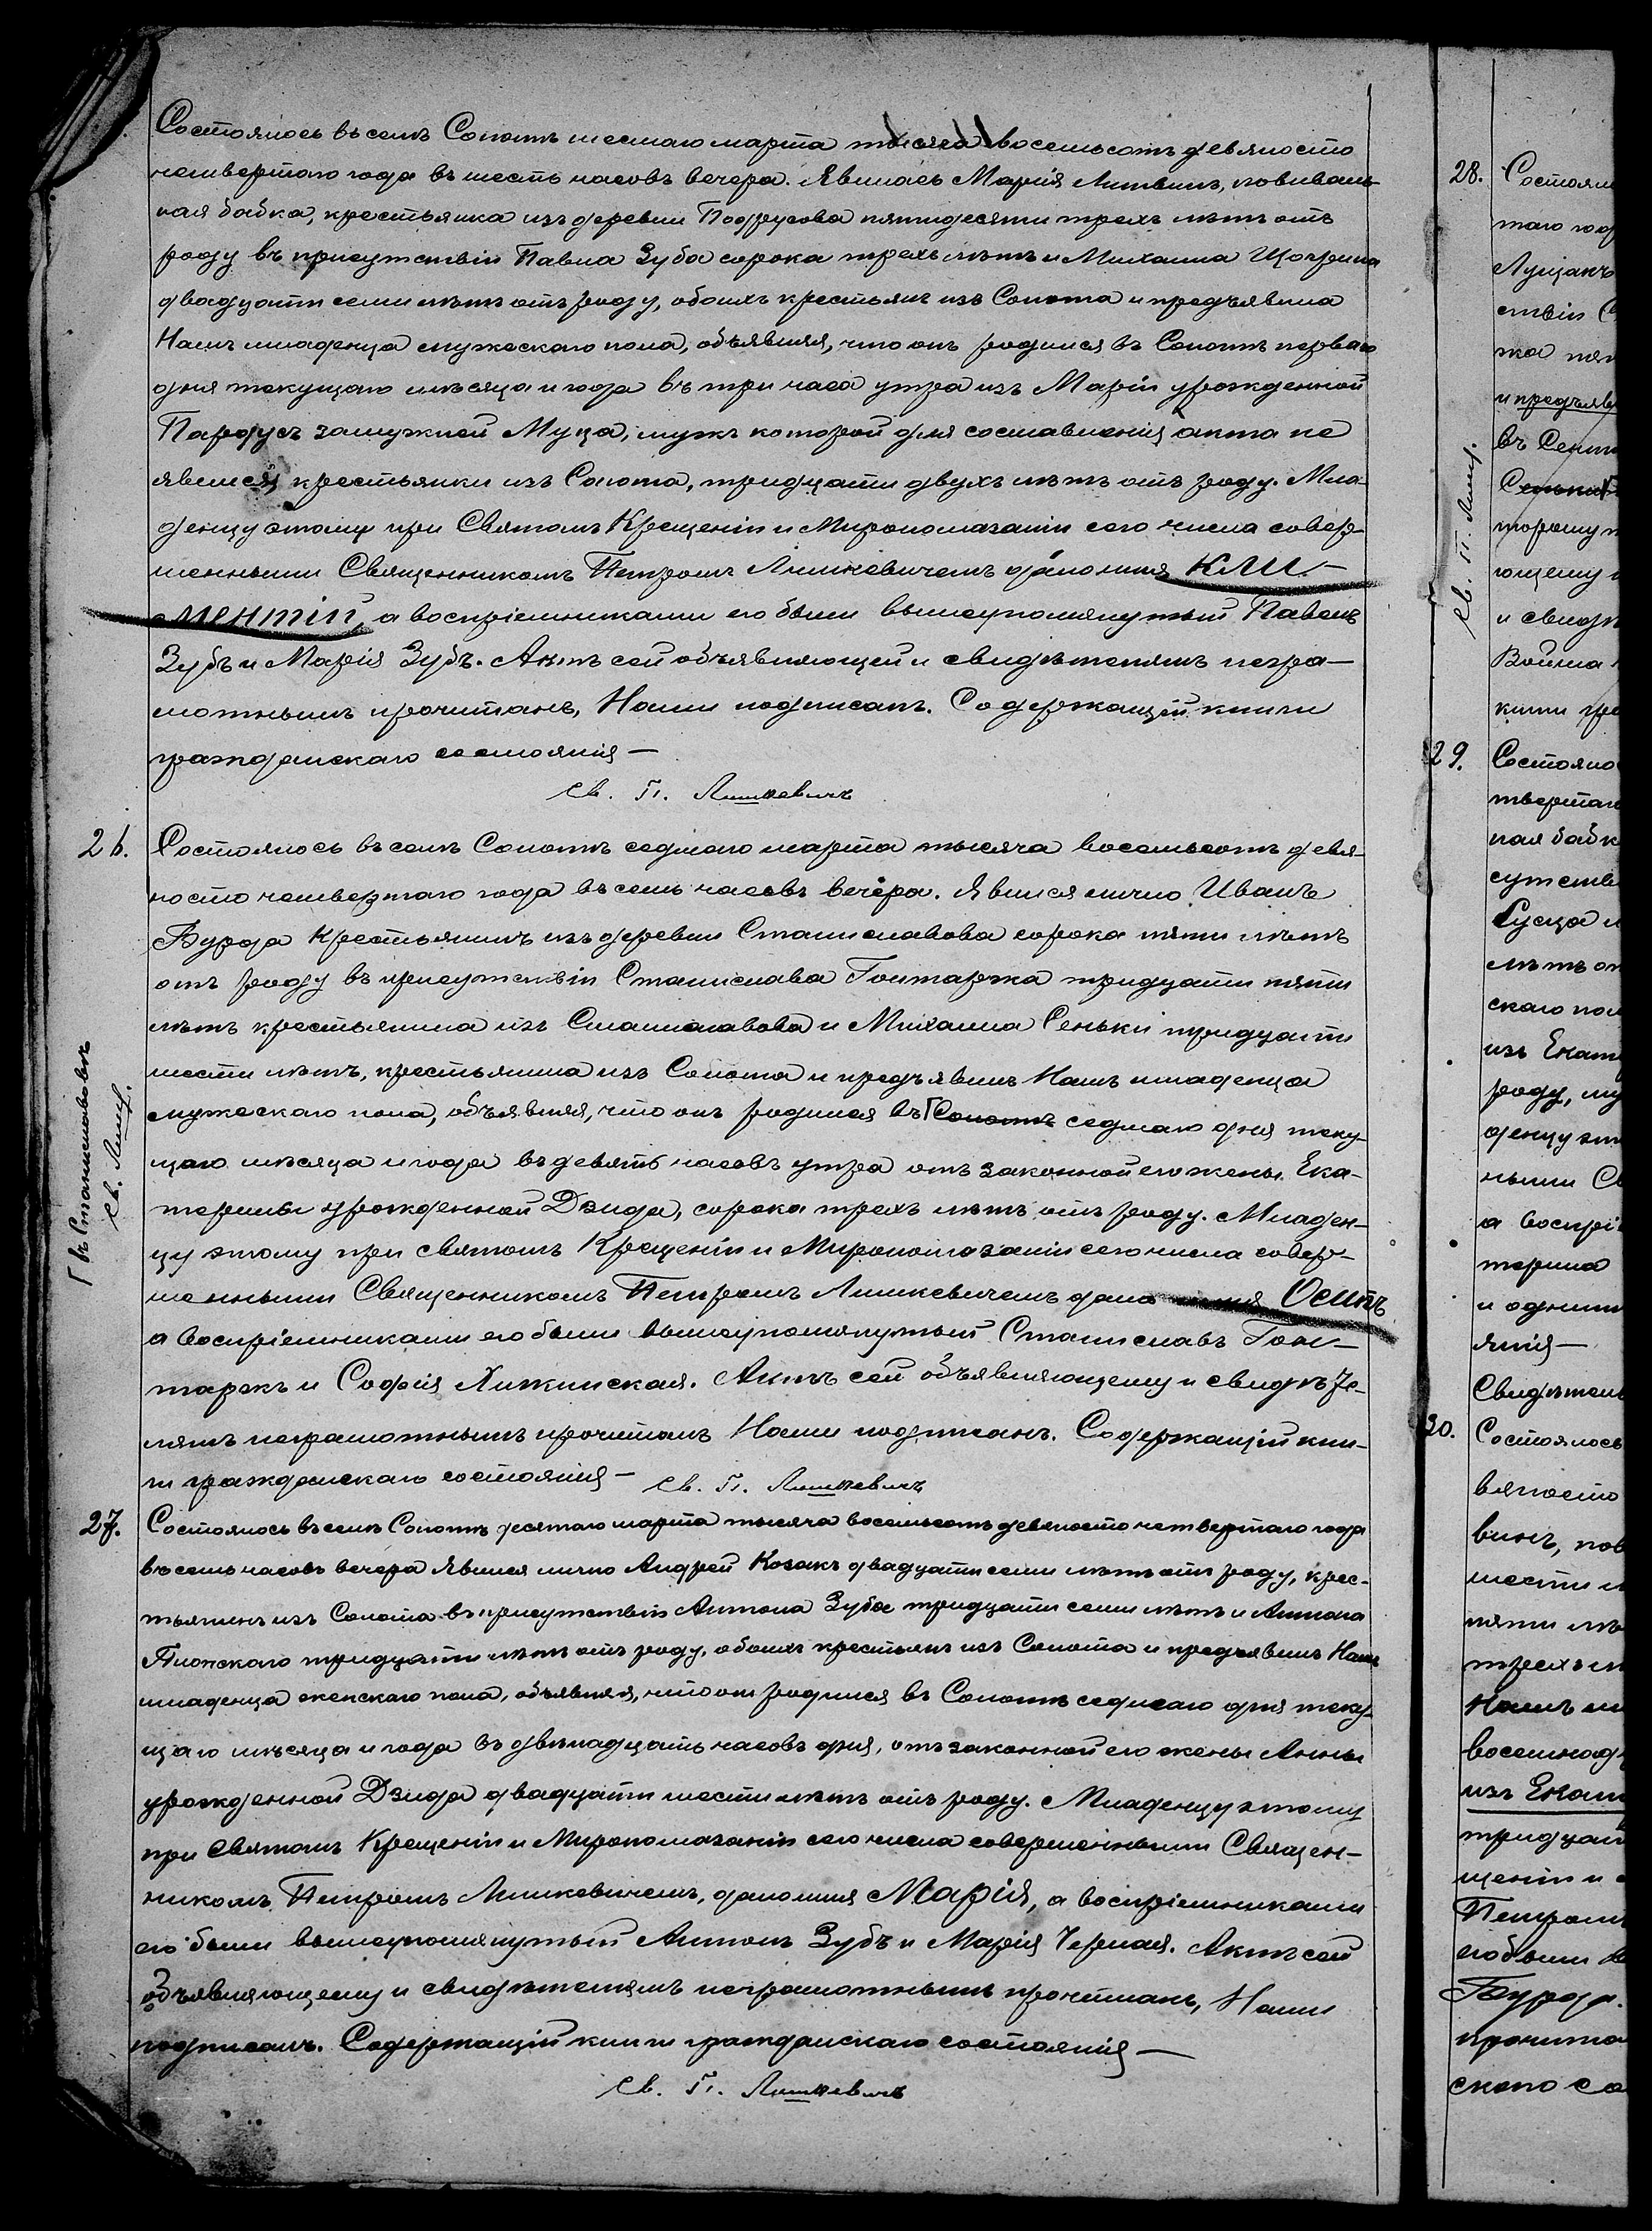 Состоялось въ семъ Сопотѣ шестаго марта тысяча восемьсотъ девяносто
четвертаго года въ шесть часовъ вечера. Явилась Марія Литвинъ, повиваль-
ная бабка, крестьянка изъ деревни Подрусова пятидесяти трехъ лѣтъ отъ
роду въ присутствіи Павла Зуба сорока трехъ лѣтъ и Михаила
двадцати семи лѣтъ отъ роду, обоихъ крестьянъ изъ Сопота и предъявила
Намъ младенца мужескаго пола, объявляя, что онъ родился въ Сопотѣ перваго
дня текущаго мѣсяца и года въ три часа утра изъ Маріи урожденной
Пародусъ замужней Муца, мужъ которой для составленія акта не
явился, крестьянки изъ Сопота, тридцати двухъ лѣтъ отъ роду. Мла-
денцу этому при Святомъ Крещеніи и Миропомазаніи сего числа совер-
шенными Священникомъ Петромъ Лишкевичемъ дано имя Кли-
ментій, а воспріемниками его были вышеупомянутый Павелъ
Зубъ и Марія Зубъ. Актъ сей объявляющей и свидѣтелямъ негра-
мотнымъ прочитанъ, Нами подписанъ. Содержащій книги
гражданскаго состоянія —
Св. П. Лишкевичъ
26. Состоялось въ семъ Сопотѣ седмаго марта тысяча восемьсотъ девя-
носто четвертаго года въ семь часовъ вечера. Явился лично Иванъ
Бурда крестьянинъ изъ деревни Станиславова сорока пяти лѣтъ
отъ роду въ присутствіи Станислава Гонтаржа тридцати пяти
лѣтъ крестьянина изъ Станиславова и Михаила Сеньки тридцати
шести лѣтъ, крестьянина изъ Сопота и предъявилъ Намъ младенца
мужескаго пола, объявляя, что онъ родился въ Сопотѣ седмаго дня теку-
щаго мѣсяца и года въ девять часовъ утра отъ законной его жены Ека-
терины урожденной Дзида, сорока трехъ лѣтъ отъ роду. Младен-
цу этому при святомъ Крещеніи и Миропомазаніи сего числа совер-
шенными Священникомъ Петромъ Лишкевичемъ дано имя Осипъ
а воспріемниками его были вышеупомянутый Станиславъ Гон-
таржъ и Софія Хижинская. Актъ сей объявляющему и свидѣте-
лямъ неграмотнымъ прочитанъ Нами подписанъ. Содержащій кни-
ги гражданскаго состоянія — Св. П. Лишкевичъ
Г въ Станиславовѣ
Св. Лиш.
27. Состоялось въ семъ Сопотѣ десятаго марта тысяча восемьсотъ девяносто четвертаго года
въ семь часовъ вечера Явился лично Андрей Козакъ двадцати семи лѣтъ отъ роду, крес-
тьянинъ изъ Сопота въ присутствіи Антона Зуба тридцати семи лѣтъ и Антона
Піонскаго тридцати лѣтъ отъ роду, обоихъ крестьянъ изъ Сопота и предъявилъ Намъ
младенца женскаго пола, объявляя, что онъ родился въ Сопотѣ седмаго дня теку-
щаго мѣсяца и года въ двѣнадцать часовъ дня, отъ законной его жены Анны
урожденной Дзида двадцати шести лѣтъ отъ роду. Младенцу этому
при Святомъ Крещеніи и Миропомазаніи сего числа совершенными Священ-
никомъ Петромъ Лишкевичемъ, дано имя Марія, а воспріемниками
его были вышеупомянутый Антонъ Зубъ и Марія Черная. Актъ сей
объявляющему и свидѣтелямъ неграмотнымъ прочитанъ, Нами
подписанъ. Содержащій книги гражданскаго состоянія —
Св. П. Лишкевичъ
28. Состоял
таго год
Лущакъ
ствіи С
жа пят
и предъяв
въ Сопот
Сеньки
торому
ющему
и свидѣ
Война
книги гра
Св. П. Лиш.
29. Состояло
твертаго
ная бабк
сутств
Гусца и
лѣтъ от
скаго пол
изъ Екат
роду, му
денцу эт
ными С
а воспрі
терина
и одним
янія —
Свидѣтел
30. Состоялось
вяносто
винъ, пов
шести л
пяти лѣ
трехъ л
Намъ м
восемнад
изъ Екат
тридцат
щеніи и
Петромъ
его были
Бурда.
прочита
скаго со